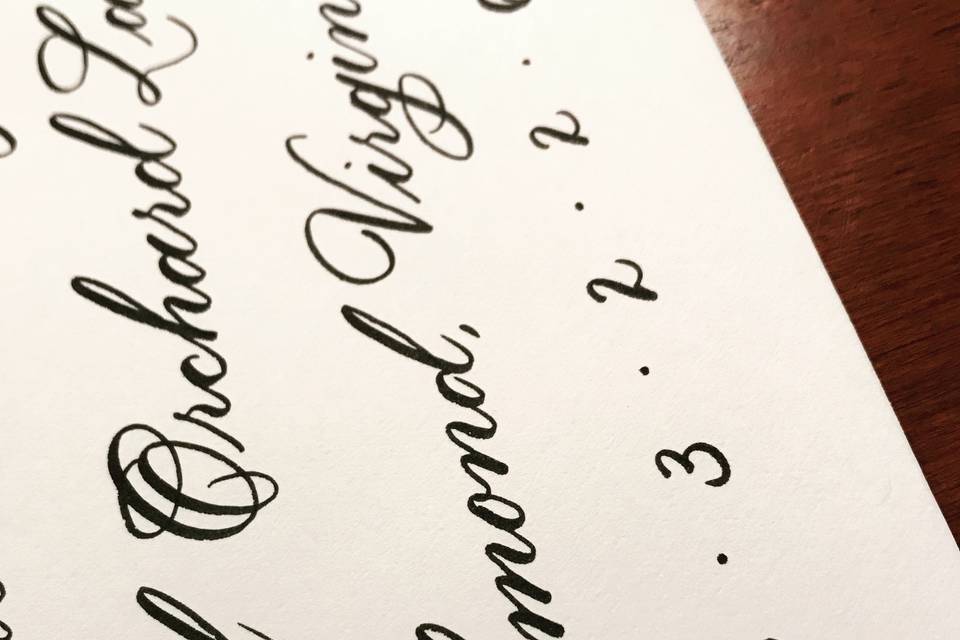 Orchard La
mond, Virgin
. 3 . 2 . 2 .